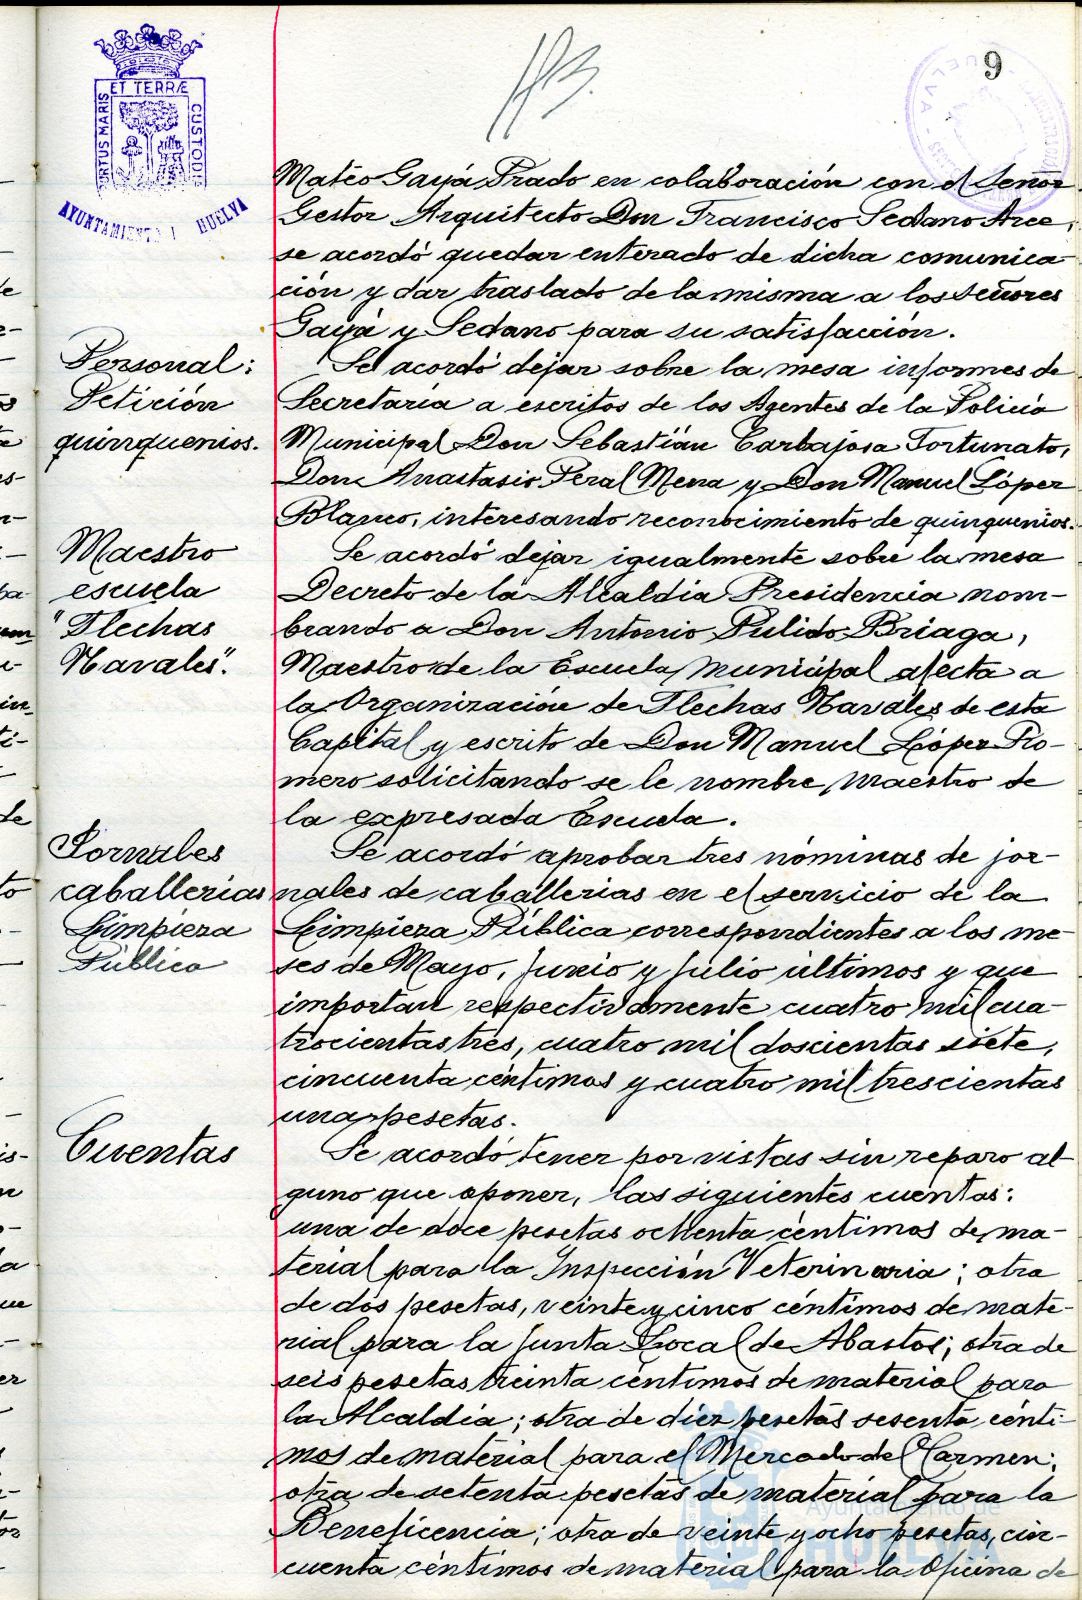 9
PORTUS MARIS
ET TERRÆ
CUSTODI
AYUNTAMIENTO HUELVA
HUELVA
Mateo Gayá Prado en colaboración con el Señor
Gestor Arquitecto Don Francisco Sedano Arce,
se acordó quedar enterado de dicha comunica-
ción y dar traslado de la misma a los señores
Gayá y Sedano para su satisfacción.
Personal:
Petición
quinquenios.
Se acordó dejar sobre la mesa informes de
Secretaría a escritos de los Agentes de la Policía
Municipal Don Sebastián Carbajosa Fortunato,
Don Anastasio Peral Mena y Don Manuel López
Blanco, interesando reconocimiento de quinquenios.
Maestro
escuela
"Flechas
Navales".
Se acordó dejar igualmente sobre la mesa
Decreto de la Alcaldía Presidencia nom-
brando a Don Antonio Pulido Briaga,
Maestro de la Escuela Municipal afecta a
la Organización de Flechas Navales de esta
Capital y escrito de Don Manuel López Ro-
mero solicitando se le nombre Maestro de
la expresada Escuela.
Jornales
caballerías
Limpieza
Pública
Se acordó aprobar tres nóminas de jor-
nales de caballerías en el servicio de la
Limpieza Pública correspondientes a los me-
ses de Mayo, Junio y Julio últimos y que
importan respectivamente cuatro mil cua-
trocientas tres, cuatro mil doscientas siete,
cincuenta céntimos y cuatro mil trescientas
una pesetas.
Cuentas
Se acordó tener por vistas sin reparo al
guno que oponer, las siguientes cuentas:
una de doce pesetas ochenta céntimos de ma-
terial para la Inspección Veterinaria; otra
de dos pesetas, veinte y cinco céntimos de mate-
rial para la Junta Local de Abastos; otra de
seis pesetas treinta céntimos de material para
la Alcaldía; otra de diez pesetas sesenta cénti-
mos de material para el Mercado del Carmen;
otra de setenta pesetas de material para la
Beneficencia; otra de veinte y ocho pesetas, cin-
cuenta céntimos de material para la Oficina de
Ayuntamiento de
HUELVA